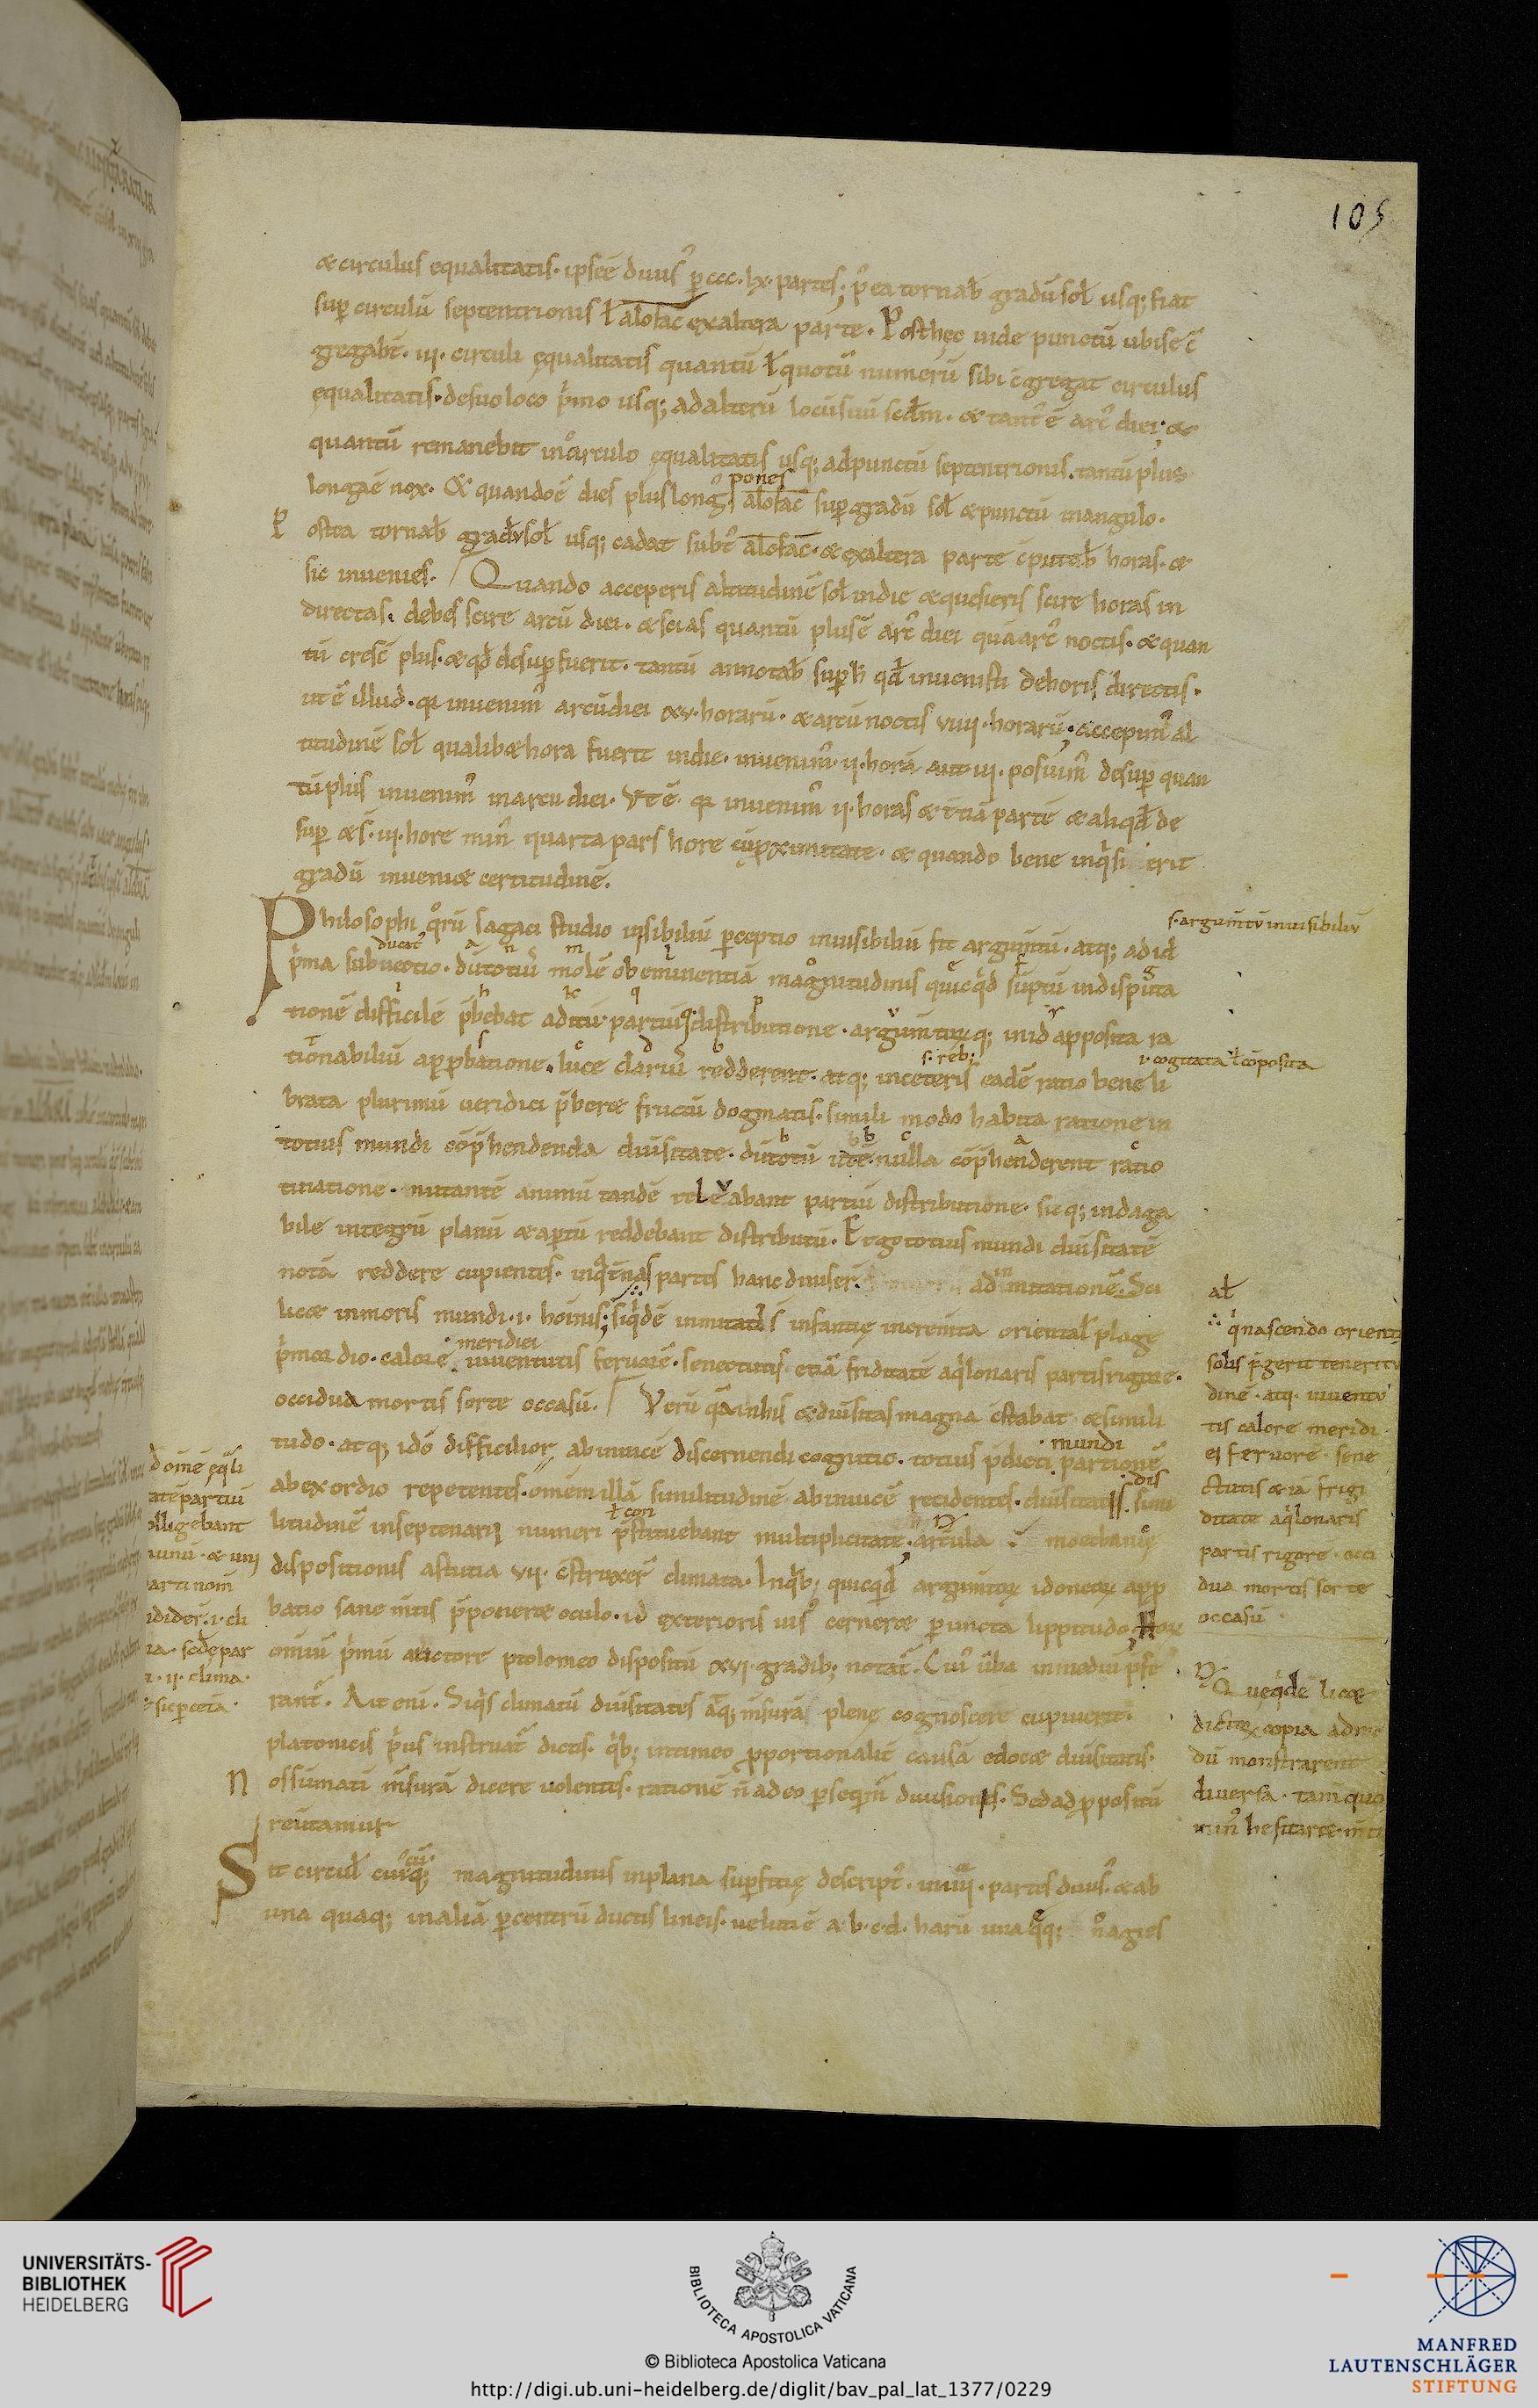 105
æ circulus equalitatis. ipseē diuis᷒ ꝑ ccc. lx. partes; p᷒ ea tornab̄ gradū sol̄ usq; fiat
sup circulū septentrionis ł alofac̄ ex altera parte. Post hęc uide punctū ubi se c̄
gegabt̄. iii. circuli ęqualitatis quantū ł quotū numerū sibi c̄gregat circulus
ęqualitatis. de suo loco p̄mo usq; ad alterū locū suū scd̄m. æ tant᷒ ē arc᷒ diei. æ
quantū remanebit in circulo ęqualitatis usq; ad punctū septentrionis. tantū plus
pones
longa ē nox. Et quando ē dies plus long᷒. alofac̄ sup gradū sol̄ æ punctū in angulo.
Postea tornab̄ gradū sol̄ usq; cadat subt᷒ alofac̄. æ ex altera parte c̄putab̄ horas. æ
sic inuenies. Quando acceperis altitudinē sol̄ in die æ quesieris scire horas in
directas. debes scire arcū diei. æ scias quantū plus ē arc᷒ diei quā arc᷒ noctis. æ quan
tū cresc̄ plus. æ qd̄ desup fuerit. tantū annotab̄ sup h qd̄ inuenisti de horis directis.
ut ē illud. qr inuenim᷒ arcū diei xv. horarū. æ arcū noctis viiii. horarū. accepim᷒ al
titudinē sol̄ qualibæ hora fuerit in die. inuenim᷒. ii. horā aut iii. posuim᷒ desup quan
tū plus inuenim᷒ in arcu diei. Vt ē. qr inuenim᷒ ii. horas æ t̄tiā partē æ aliqd̄ de
sup æ s. iii. hore min᷒ quarta pars hore cū ꝓximitate. æ quando bene inq̄si erit
gradū inueniæ certitudinē.
Philosophi q᷒rū sagaci studio uisibiliū ꝑceptio inuisibiliū fit argum̄tū. atq; ad id
s. argum̄tū inuisibiliū
ducat᷒
p̄ma subuectio. dū toti᷒ molē ob eminentiā magnitudinis quicq̄d sūptū in disputa
tionē difficilē p̄bebat aditū. partiū distributione. argum̄torū q; in id apposita ra
tionabiliū apꝓbatione. luce clari᷒ redderent. atq; in ceteris eadē ratio bene li
s. reb;
i. cognata ł cōposita
brata plurimū ueridici p̄beræ fructū dogmatis. simili modo habita ratione in
totius mundi cōp̄hendenda diuisitate. dū totū ut ē. nulla cōp̄henderent ratio
tinatione. nutantē animū tandē releuabant partiū distributione. sicq; indaga
bile integrū planū æ aꝑtū reddebant distributū. Ergo totius mundi diuisitatē
notā reddere cupientes. in q̄t̄nas partes hanc diuiser̄. ad imitationē. Sci
licæ inmoris mundi. i. hoīnis; siq̄dē inmitat᷒ s infantię increm̄ta orientał plage
p̄mordio. calorē iuuentutis feruorē. senectutis etiā friditatē aq̄lonaris partis rigore.
meridiei
occidua mortis sorte occasū. Verū q̄a in his æ diuisitas magna c̄stabat æ simili
tudo. atq; ideo difficilior ab inuicē discernendi cognitio. totius p̄dicti partionē
mundi
ab exordio repetentes. omēm illā similitudinē ab inuicē recidentes. diuisitatis. simi
dis
ł con
litudinē in septenarii numeri p̄stituebant multiplicitate. articula
dispositionis astutia vii. c̄struxer̄ climata. In q̄b; quicq̄d argum̄torū idoneorū apꝓ
batio sane m̄tis p̄poneræ oculo. id exterioris uis᷒ cerneræ ꝑ uncta lippitudo.
omniū p̄mū auctore ptolomeo dispositū xvi. gradib; notat̄. Cui᷒ uba in mediū ꝓfe
rant᷒. Ait eni. Siq̄s climatū diuisitates æq; m̄surā plene cognoscere cupiuerit.
platonicis p̄us instruat᷒ dictis. q̄b; in timeo ꝓportionalit̄ causā edocæ diuisitatis.
Nos sūmatī m̄surā dicere uolentes. rationē n̄ adeo ꝑseq̄m̄ diuisionis. Sed ad ꝓpositū
reūtamur
Sit circul̄ cuiq; magnitudinis in plana supficie descript᷒. in iiii. partes diuis᷒. æ ab
una quaq; in aliā ꝑ centrū ductis lineis. ueluti ē a. b. c. d. harū una q̄q; nonagies
ał
q̄ nascendo orient
solis p̄gerit teneritu
dinē. atq. iuuentu
tis calore meridi
ei feruore. sene
ctutis æ iā frigi
ditate aq̄lonaris
partis rigore. occi
dua mortis sorte
occasū
Queq̄dē licæ
dictorū copia ad me
diū monstrarent
diuersa. tam̄ quo
hesitarte.
d omē ęq̄li
atē partiū
olligebant
æ un
arti nom̄
ididēr. i. cli
ia. sed ē par
ii. clima.
sic ꝑ cetā.
UNIVERSITÄTS-
BIBLIOTHEK
HEIDELBERG
BIBLIOTECA APOSTOLICA VATICANA
© Biblioteca Apostolica Vaticana
http://digi.ub.uni-heidelberg.de/diglit/bav_pal_lat_1377/0229
MANFRED
LAUTENSCHLÄGER
STIFTUNG